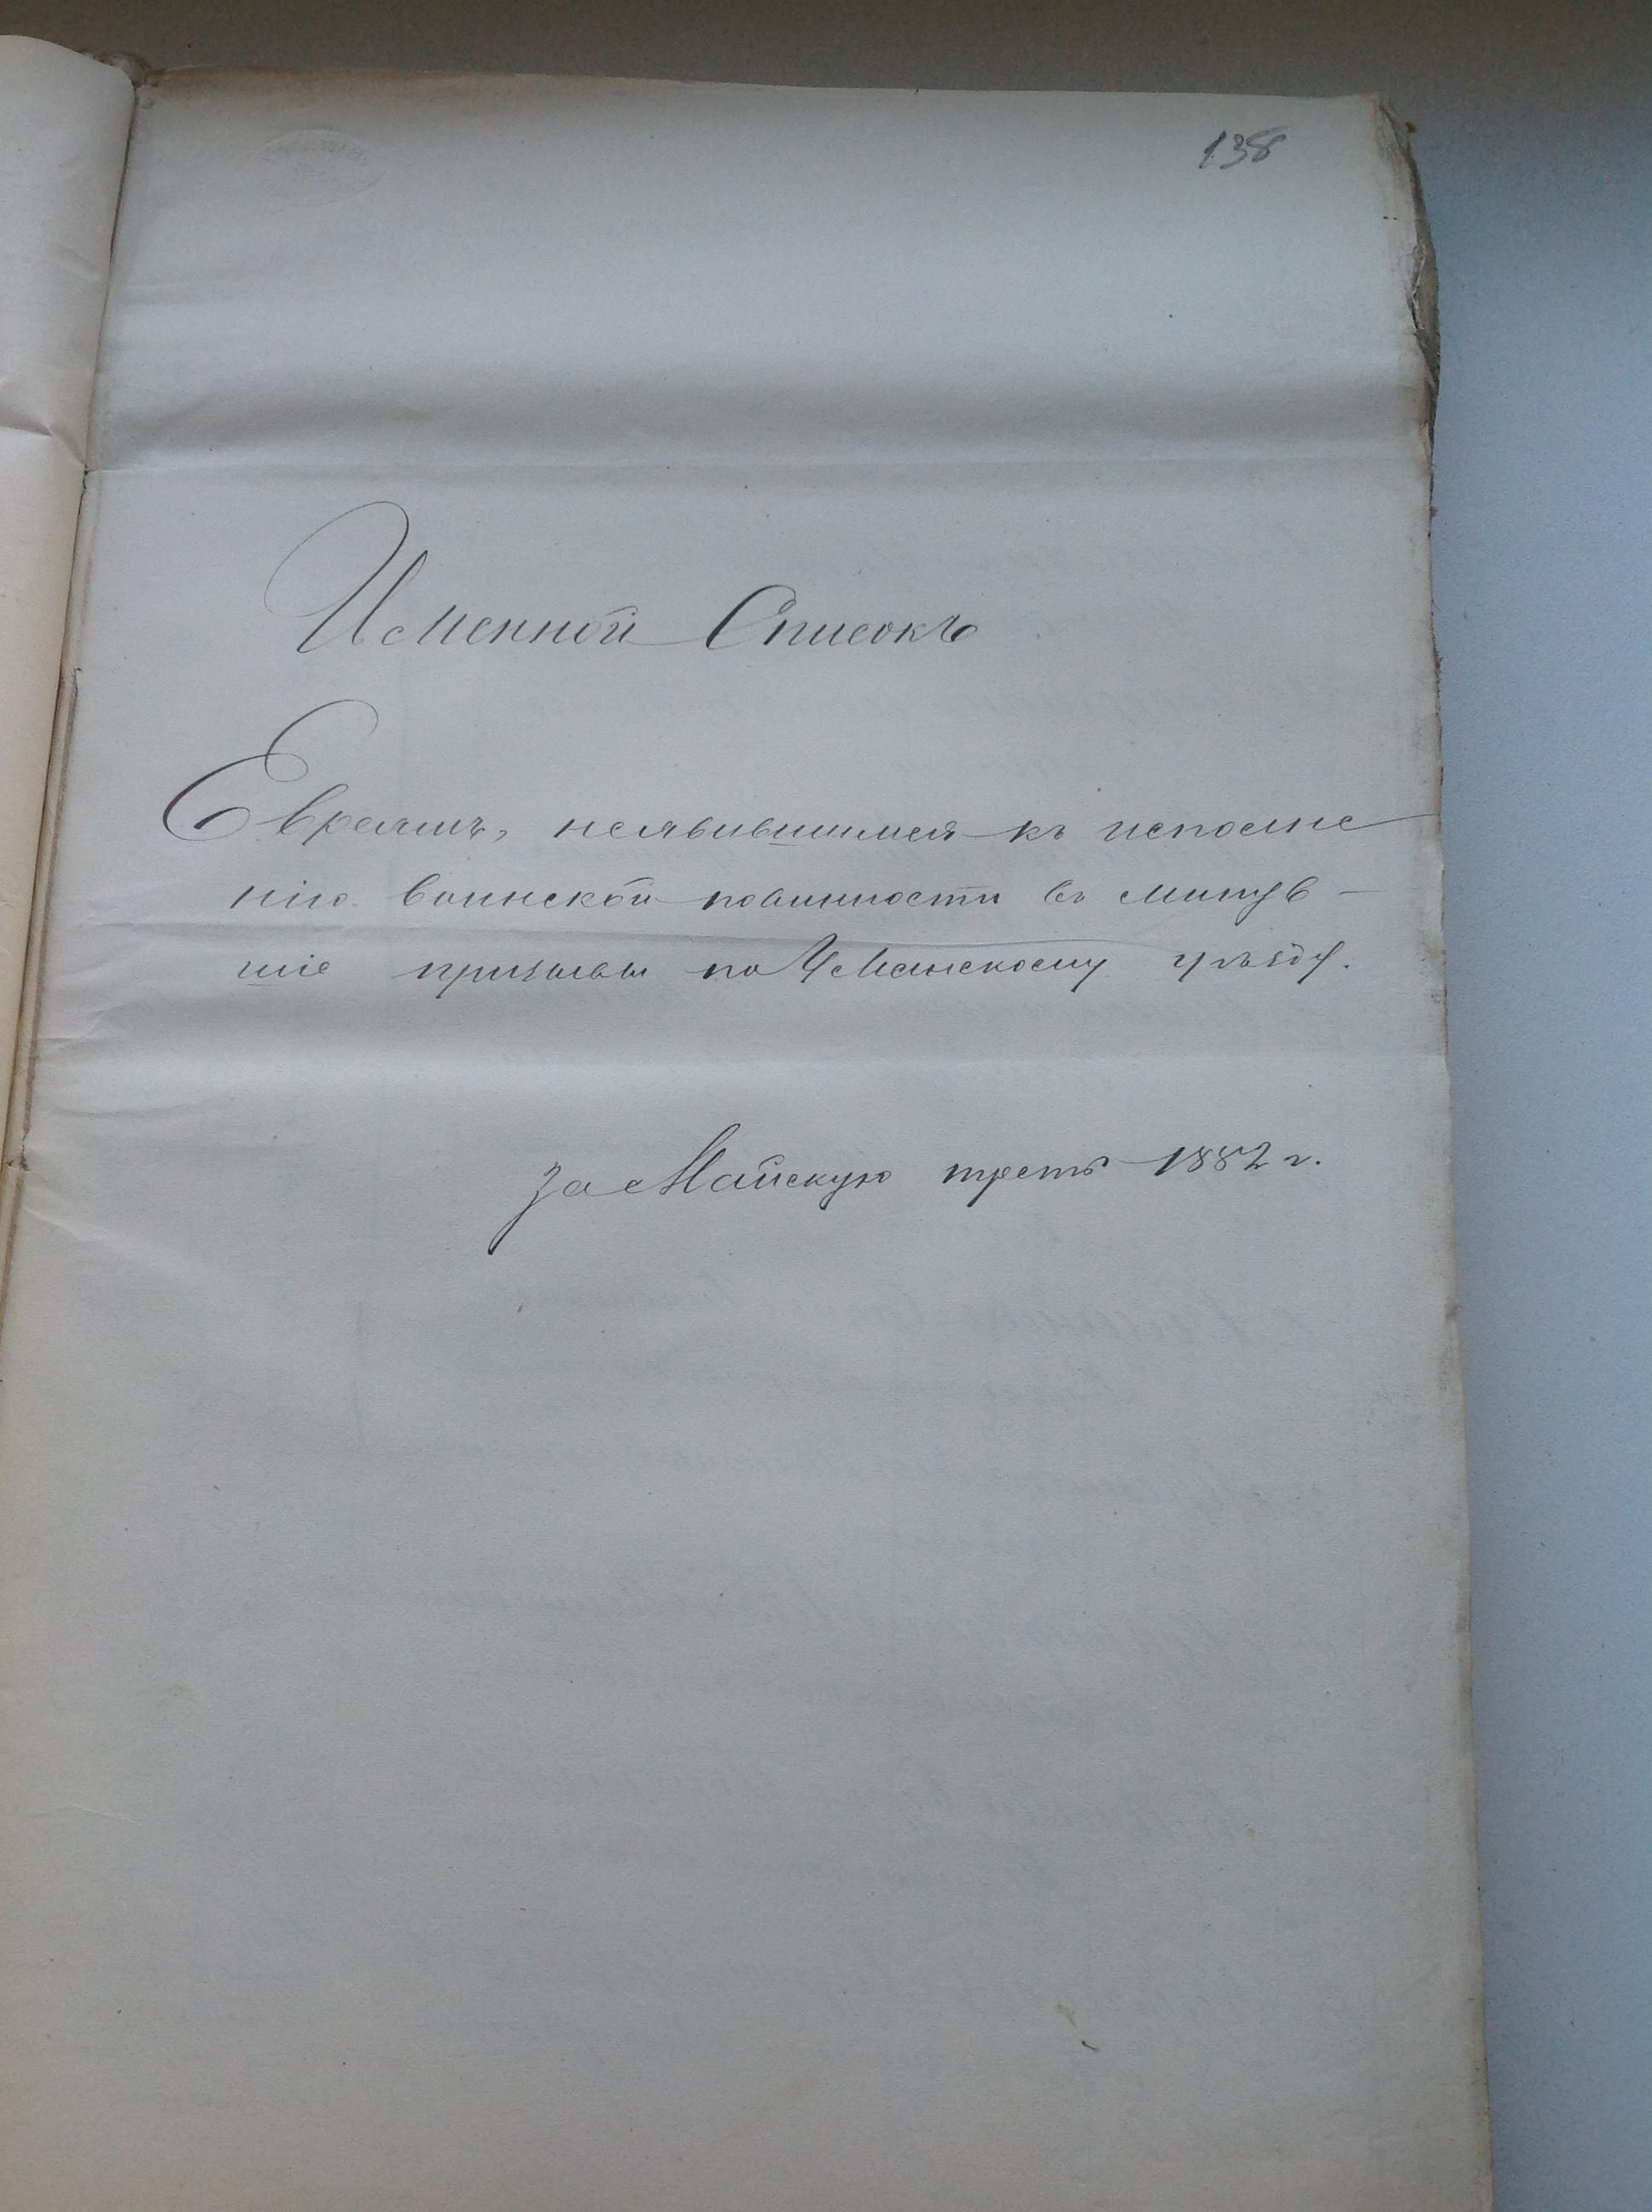 138
Именной Списокъ
Евреямъ, неявившимся къ исполне
нію воинской повинности въ минув-
шіе призывы по Уманскому уѣзду.
за Майскую треть 1882 г.